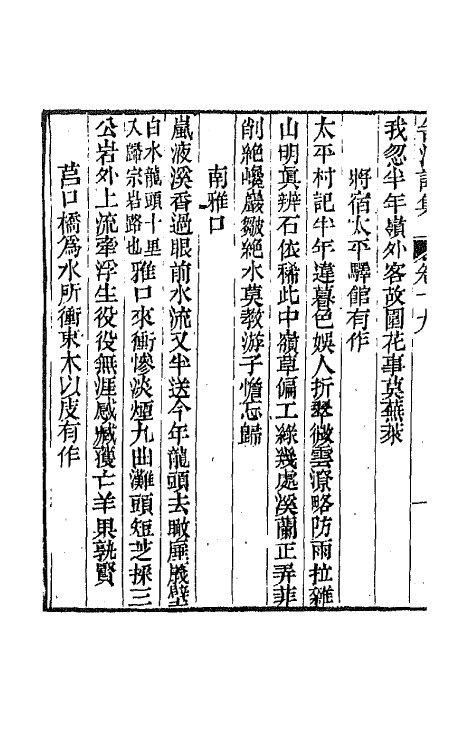 卷十九
我忽半年嶺外客故園花事莫蕪萊
將宿太平驛館有作
太平村記半年違暮色娛人折翠微雲潦略防雨拉雜
山明眞辨石依稀此中嶺草偏工綠幾處溪蘭正弄菲
削絶巉巖皺絶水莫教游子憺忘歸
南雅口
嵐液溪香過眼前水流又半送今年龍頭去瞰厜㕒壁
白水龍頭十里又歸宗岩路也雅口來衝慘淡煙九曲灘頭短芝採三
公岩外上流牽浮生役役無涯感臧獲亡羊果孰賢
莒口橋爲水所衝束木以庋有作